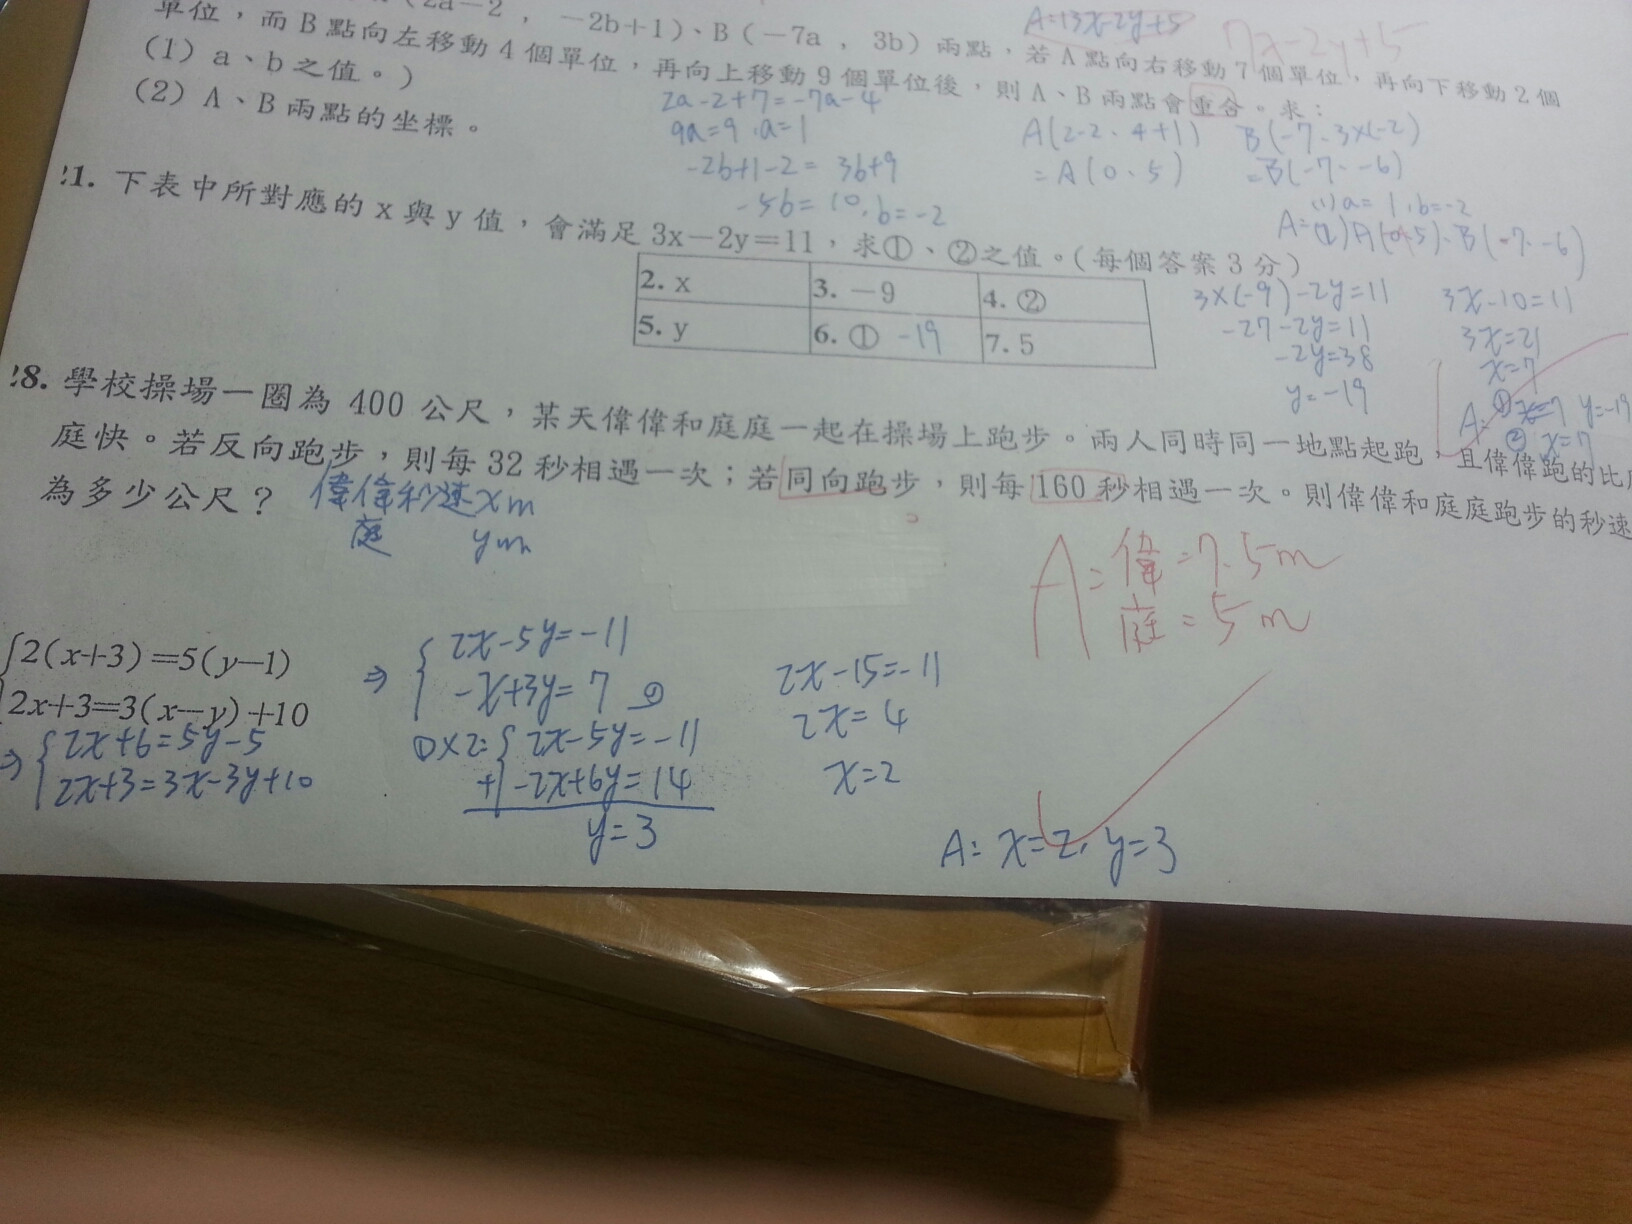 (2a－2 , －2b＋1)、B(－7a , 3b)兩點，若A點向右移動7個單位，再向下移動2個
單位，而B點向左移動4個單位，再向上移動9個單位後，則A、B兩點會重合。求：
(1) a、b之值。)
(2) A、B兩點的坐標。
A=13x-2y+5
7x-2y+5
2a-2+7=-7a-4
9a=9,a=1
-2b+1-2=3b+9
-5b=10,b=-2
A(2-2、4+1)
=A(0、5)
B(-7、3×(-2)
=B(-7、-6)
(1)a=1,b=-2
A=(2)A(0、5)、B(-7、-6)
21. 下表中所對應的x與y值，會滿足3x－2y＝11，求①、②之值。(每個答案3分)
2. x 3. －9 4. ②
5. y 6. ① -19 7. 5
3×(-9)-2y=11
-27-2y=11
-2y=38
y=-19
3x-10=11
3x=21
x=7
A:① y=-19
② x=7
28. 學校操場一圈為 400 公尺，某天偉偉和庭庭一起在操場上跑步。兩人同時同一地點起跑，且偉偉跑的比
庭快。若反向跑步，則每32秒相遇一次；若同向跑步，則每160秒相遇一次。則偉偉和庭庭跑步的秒速
為多少公尺？
偉偉秒速xm
庭 ym
A=偉=7.5m
庭=5m
2(x+3)=5(y-1)
2x+3=3(x-y)+10
⇒ 2x+6=5y-5
2x+3=3x-3y+10
⇒ 2x-5y=-11
-x+3y=7 ①
①×2= 2x-5y=-11
+ -2x+6y=14
y=3
2x-15=-11
2x=4
x=2
A: x=2,y=3